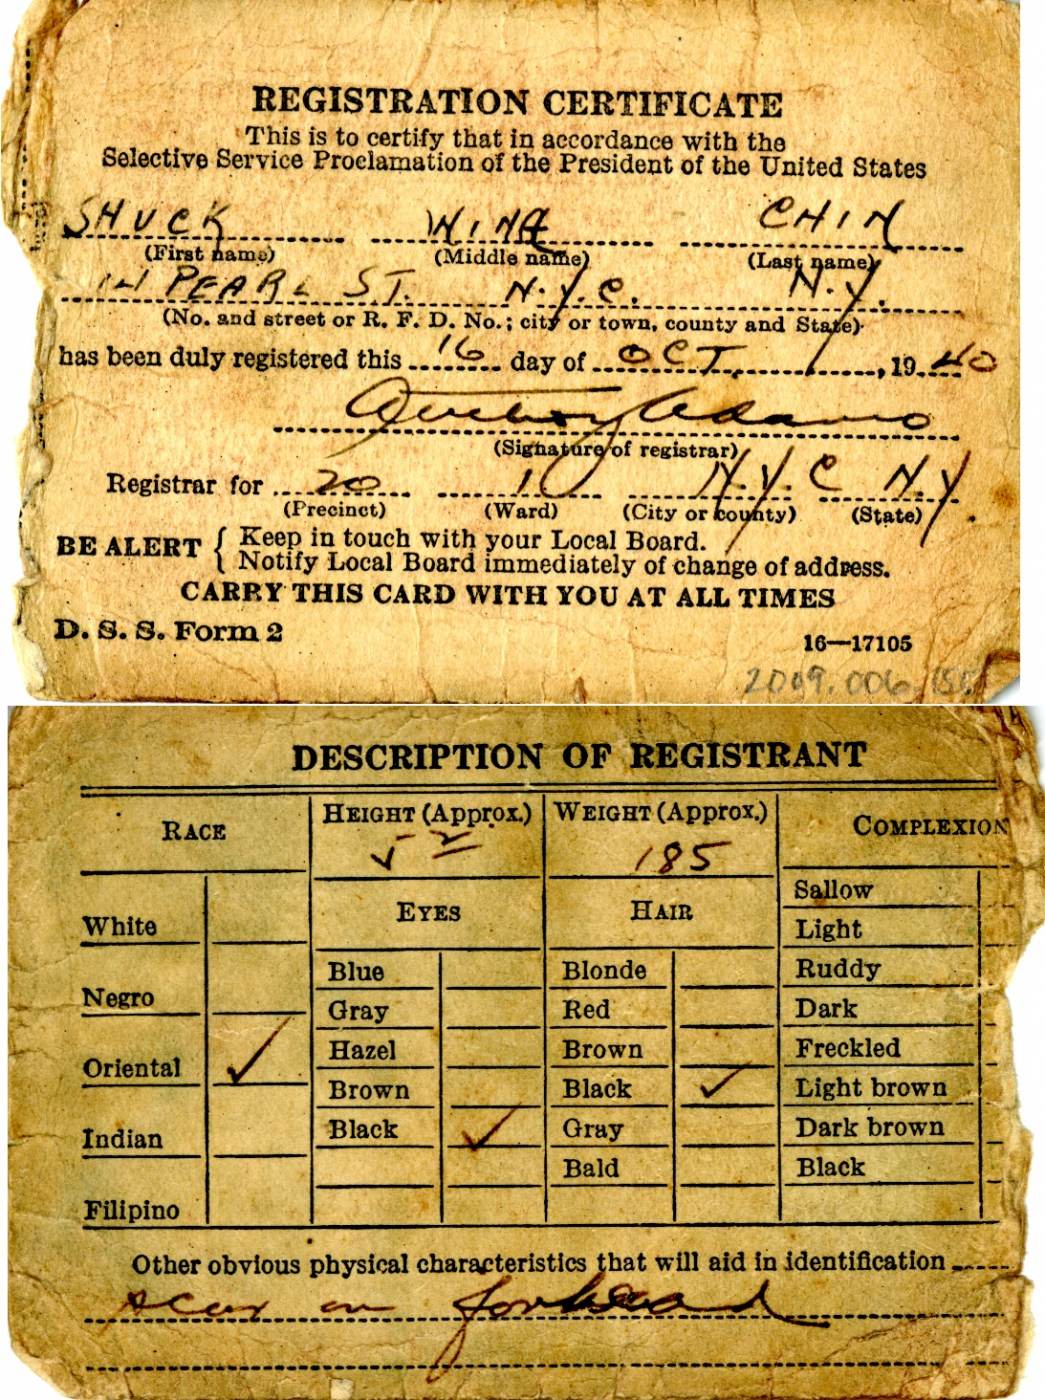 REGISTRATION CERTIFICATE
This is to certify that in accordance with the
Selective Service Proclamation of the President of the United States
SHUCK WING CHIN
(First name) (Middle name) (Last name)
PEARL ST. N.Y.C. N.Y.
(No. and street or R. F. D. No.; city or town, county and State)
has been duly registered this 16 day of OCT. , 1940
Adams
(Signature of registrar)
Registrar for 20 1 N.Y.C N.Y.
(Precinct) (Ward) (City or county) (State)
BE ALERT { Keep in touch with your Local Board.
Notify Local Board immediately of change of address.
CARRY THIS CARD WITH YOU AT ALL TIMES
D. S. S. Form 2
16—17105
2009.006.
DESCRIPTION OF REGISTRANT
RACE
White
Negro
Oriental ✓
Indian
Filipino
HEIGHT (Approx.)
5 2
EYES
Blue
Gray
Hazel
Brown
Black ✓
WEIGHT (Approx.)
185
HAIR
Blonde
Red
Brown
Black ✓
Gray
Bald
COMPLEXION
Sallow
Light
Ruddy
Dark
Freckled
Light brown
Dark brown
Black
Other obvious physical characteristics that will aid in identification
scar on forhead